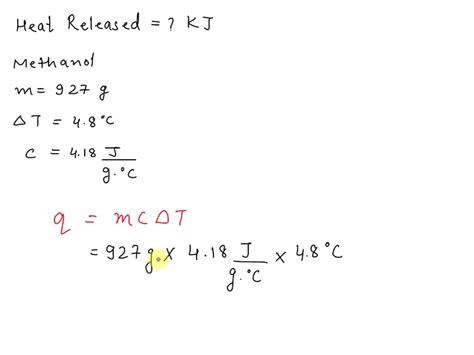 Heat Released = ? KJ
Methanol
m = 927 g
ΔT = 4.8°C
c = 4.18 J/g.°C
q = mCΔT
= 927 g. × 4.18 J/g.°C × 4.8°C